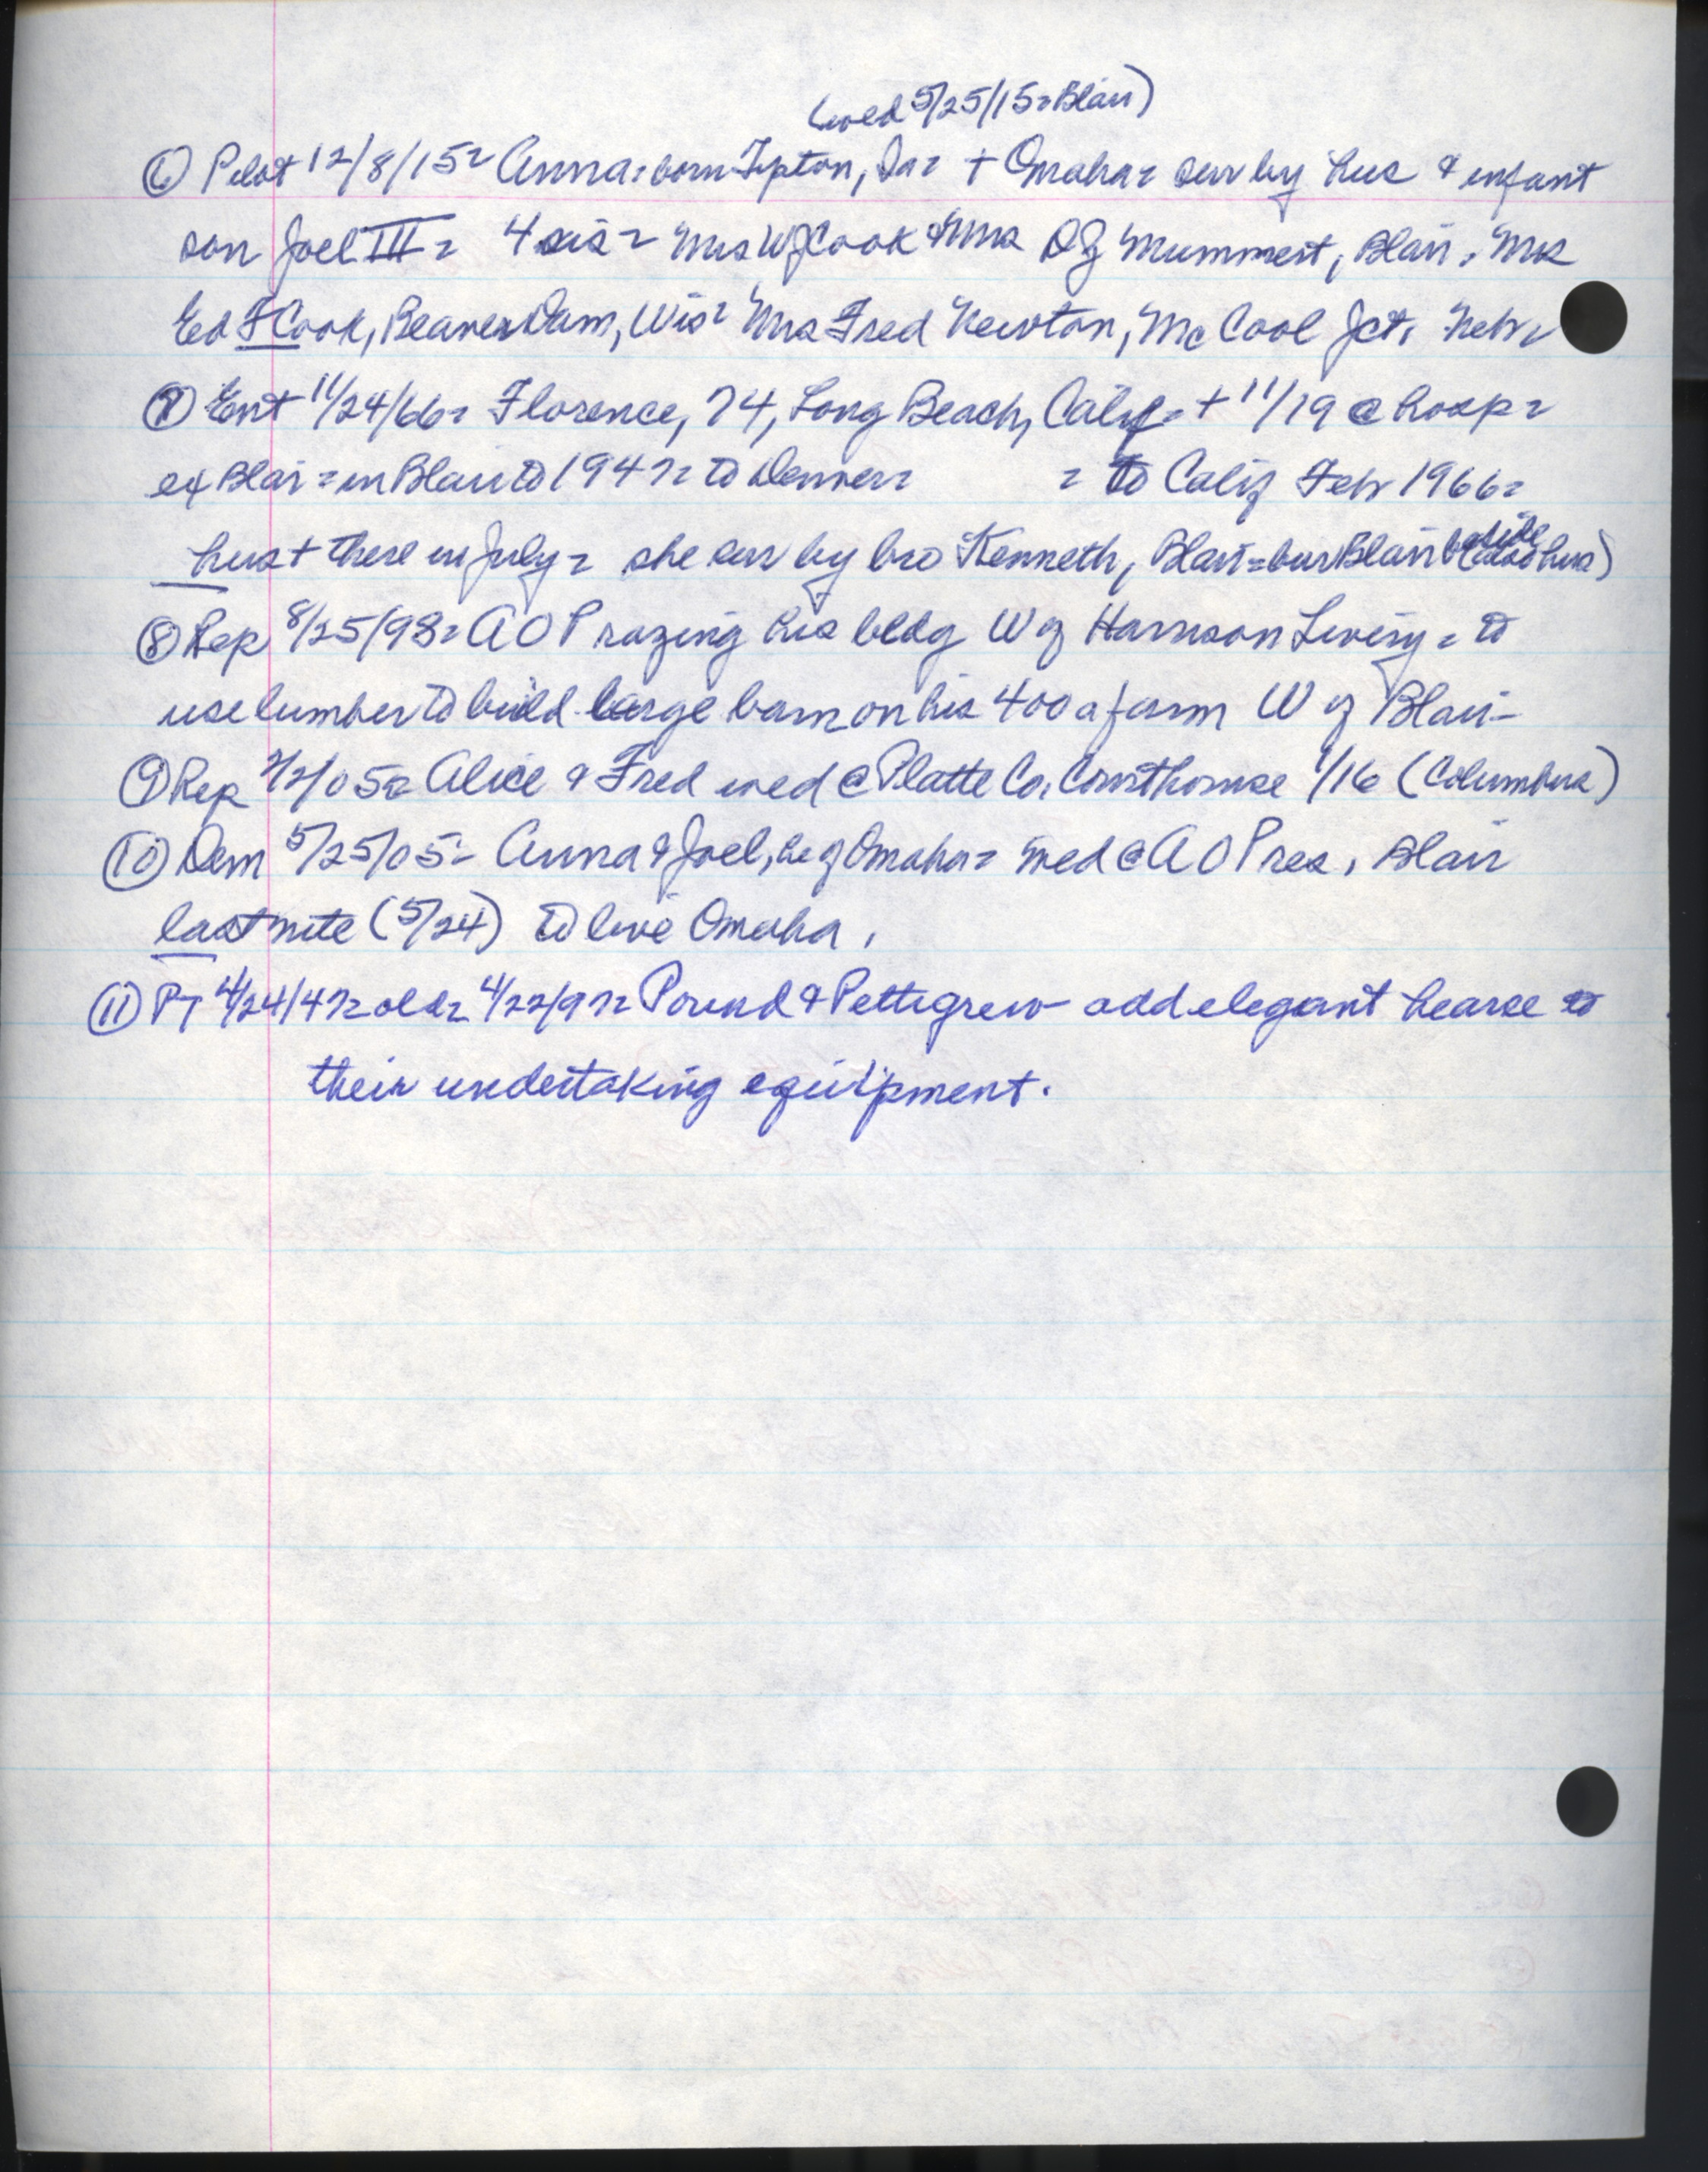 (wed 5/25/15= Blair)
⑥ Pilot 12/8/15= Anna= born Tipton, Ia= + Omaha= sur by hus & infant
son Joel III= 4 sis= Mrs W J Cook & Mrs D Z Mummert, Blair, Mrs
Ed F Cook, Beaver Dam, Wis= Mrs Fred Newton, McCool Jct, Nebr=
⑦ Ent 11/24/66= Florence, 74, Long Beach, Calif= + 11/19 @ hosp=
ex Blair= in Blair to 1947= to Denver= = to Calif Feb 1966=
hus + there in July= she sur by bro Kenneth, Blair= bur Blair beside (also hus)
⑧ Rep 8/25/98= A O P razing his bldg W of Harrison Livery= to
use lumber to build large barn on his 400 a farm W of Blair-
⑨ Rep 2/2/05= Alice & Fred wed @ Platte Co. Courthouse 1/16 (Columbus)
⑩ Dem 5/25/05= Anna & Joel, he of Omaha= wed @ A O P res, Blair
last nite (5/24) to live Omaha,
⑪ PT 4/24/47= old= 4/22/97= Pound & Pettigrew add elegant hearse to
their undertaking equipment.